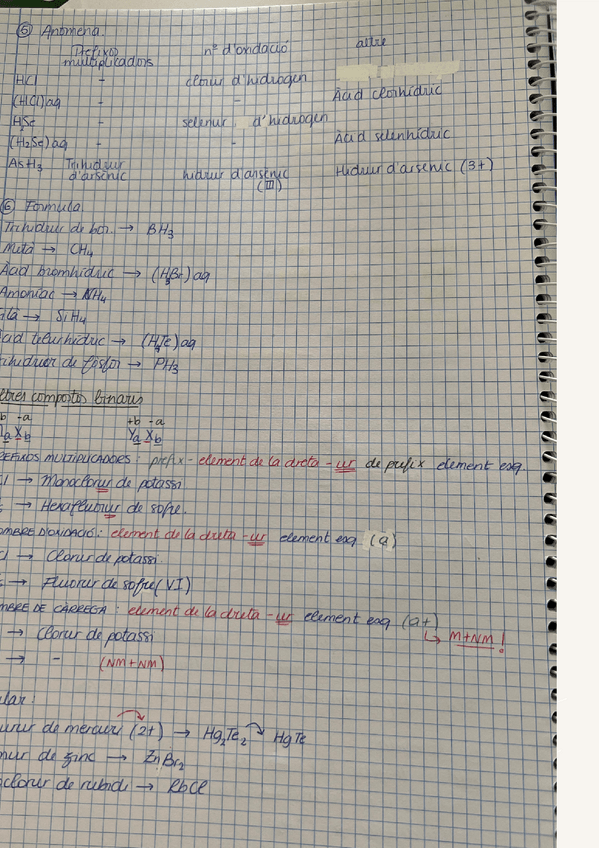 ⑤ Anomena.
Prefixos multiplicadors nº d'oxidació altre
HCl - clorur d'hidrogen
(HCl)aq - - Àcid clorhídric
H₂Se - selenur d'hidrogen
(H₂Se)aq - - Àcid selenhídric
AsH₃ Trihidrur d'arsènic hidrur d'arsènic (III) Hidrur d'arsènic (3+)
⑥ Formula
Trihidrur de bor. → BH₃
Metà → CH₄
Àcid bromhídric → (HBr)aq
Amoníac → NH₄
ilà → SiH₄
cid telurhídric → (H₂Te)aq
rihidrur de fòsfor → PH₃
ltres compostos binaris
+b -a
Ya Xb
REFIXOS MULTIPLICADORS: prefix - element de la dreta - ur de prefix element esq.
l → Monoclorur de potassi
→ Hexafluorur de sofre.
OMBRE D'OXIDACIÓ: element de la dreta - ur element esq (a)
l → Clorur de potassi
→ Fluorur de sofre (VI)
MBRE DE CÀRREGA: element de la dreta - ur element esq (a+)
↳ M+NM!
→ Clorur de potassi
→ - (NM+NM)
ular:
urur de mercuri (2+) → Hg₂Te₂ HgTe
mur de zinc → ZnBr₂
oclorur de rubidi → RbCl